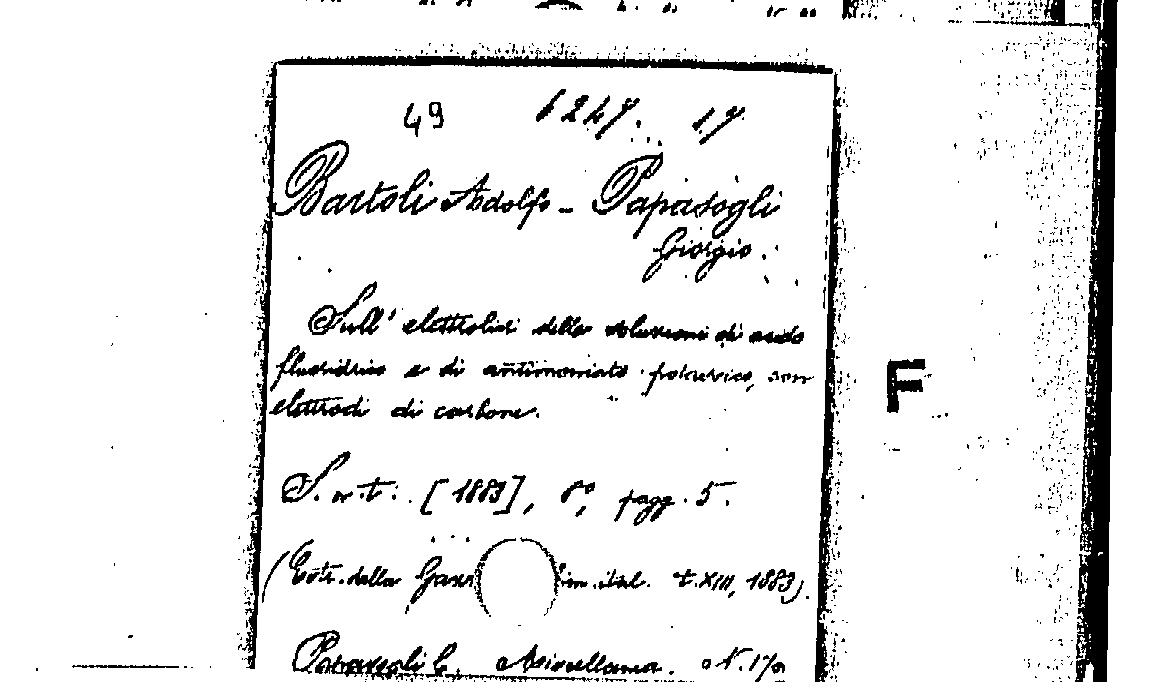 49 6247. 17
Bartoli Adolfo - Papasogli
Giorgio.
Sull' elettrolisi delle soluzioni di acido
fluoridrico e di antimoniato potassico, con
elettrodi di carbone.
F
S. n. t. [1883], 8°, pagg. 5.
(Estr. della Gazz chim. ital. t. XIII, 1883).
Miscellanea. N. 17